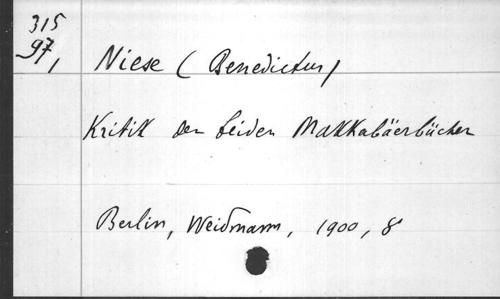 315
97,
Niese (Benedictus)
Kritik der beiden Makkabäerbücher
Berlin, Weidmann, 1900, 8°